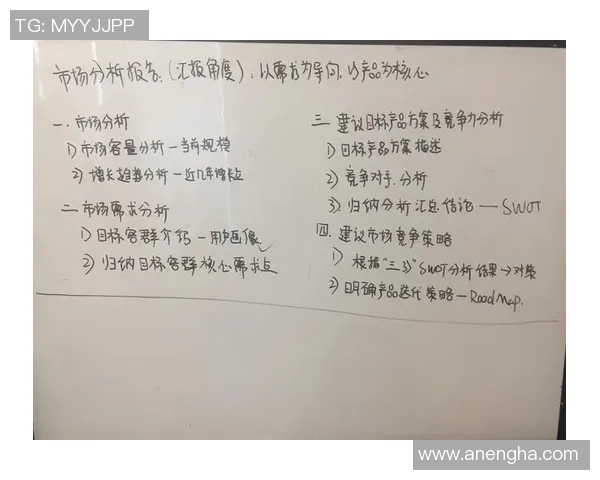 TG: MYYJJPP
市场分析报告:(汇报角度):以需求为导向,以产品为核心
一.市场分析
1) 市场容量分析—当前规模
2) 增长趋势分析—近几年增长点
二.市场需求分析
1) 目标客群介绍—用户画像
2) 归纳目标客群核心需求点
三.建议目标产品方案及竞争力分析
1) 目标产品方案描述
2) 竞争对手分析
3) 归纳分析汇总结论——SWOT
四.建议市场竞争策略
1) 根据"三.3)"SWOT分析结果→对策
2) 明确产品迭代策略—RoadMap.
www.anengha.com